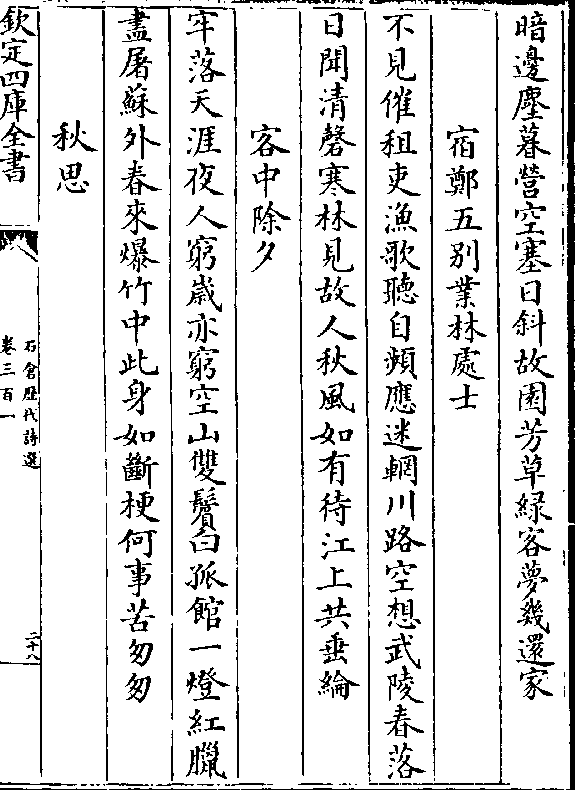 暗邊塵暮營空塞日斜故園芳草緑客夢幾還家
宿鄭五别業林處士
不見催租吏漁歌聽自頻應迷輞川路空想武陵春落
日聞清磬寒林見故人秋風如有待江上共垂綸
客中除夕
牢落天涯夜人窮歲亦窮空山雙鬢白孤館一燈紅臘
盡屠蘇外春來爆竹中此身如斷梗何事苦匆匆
秋思
欽定四庫全書
石倉歷代詩選
卷三百一
二十八